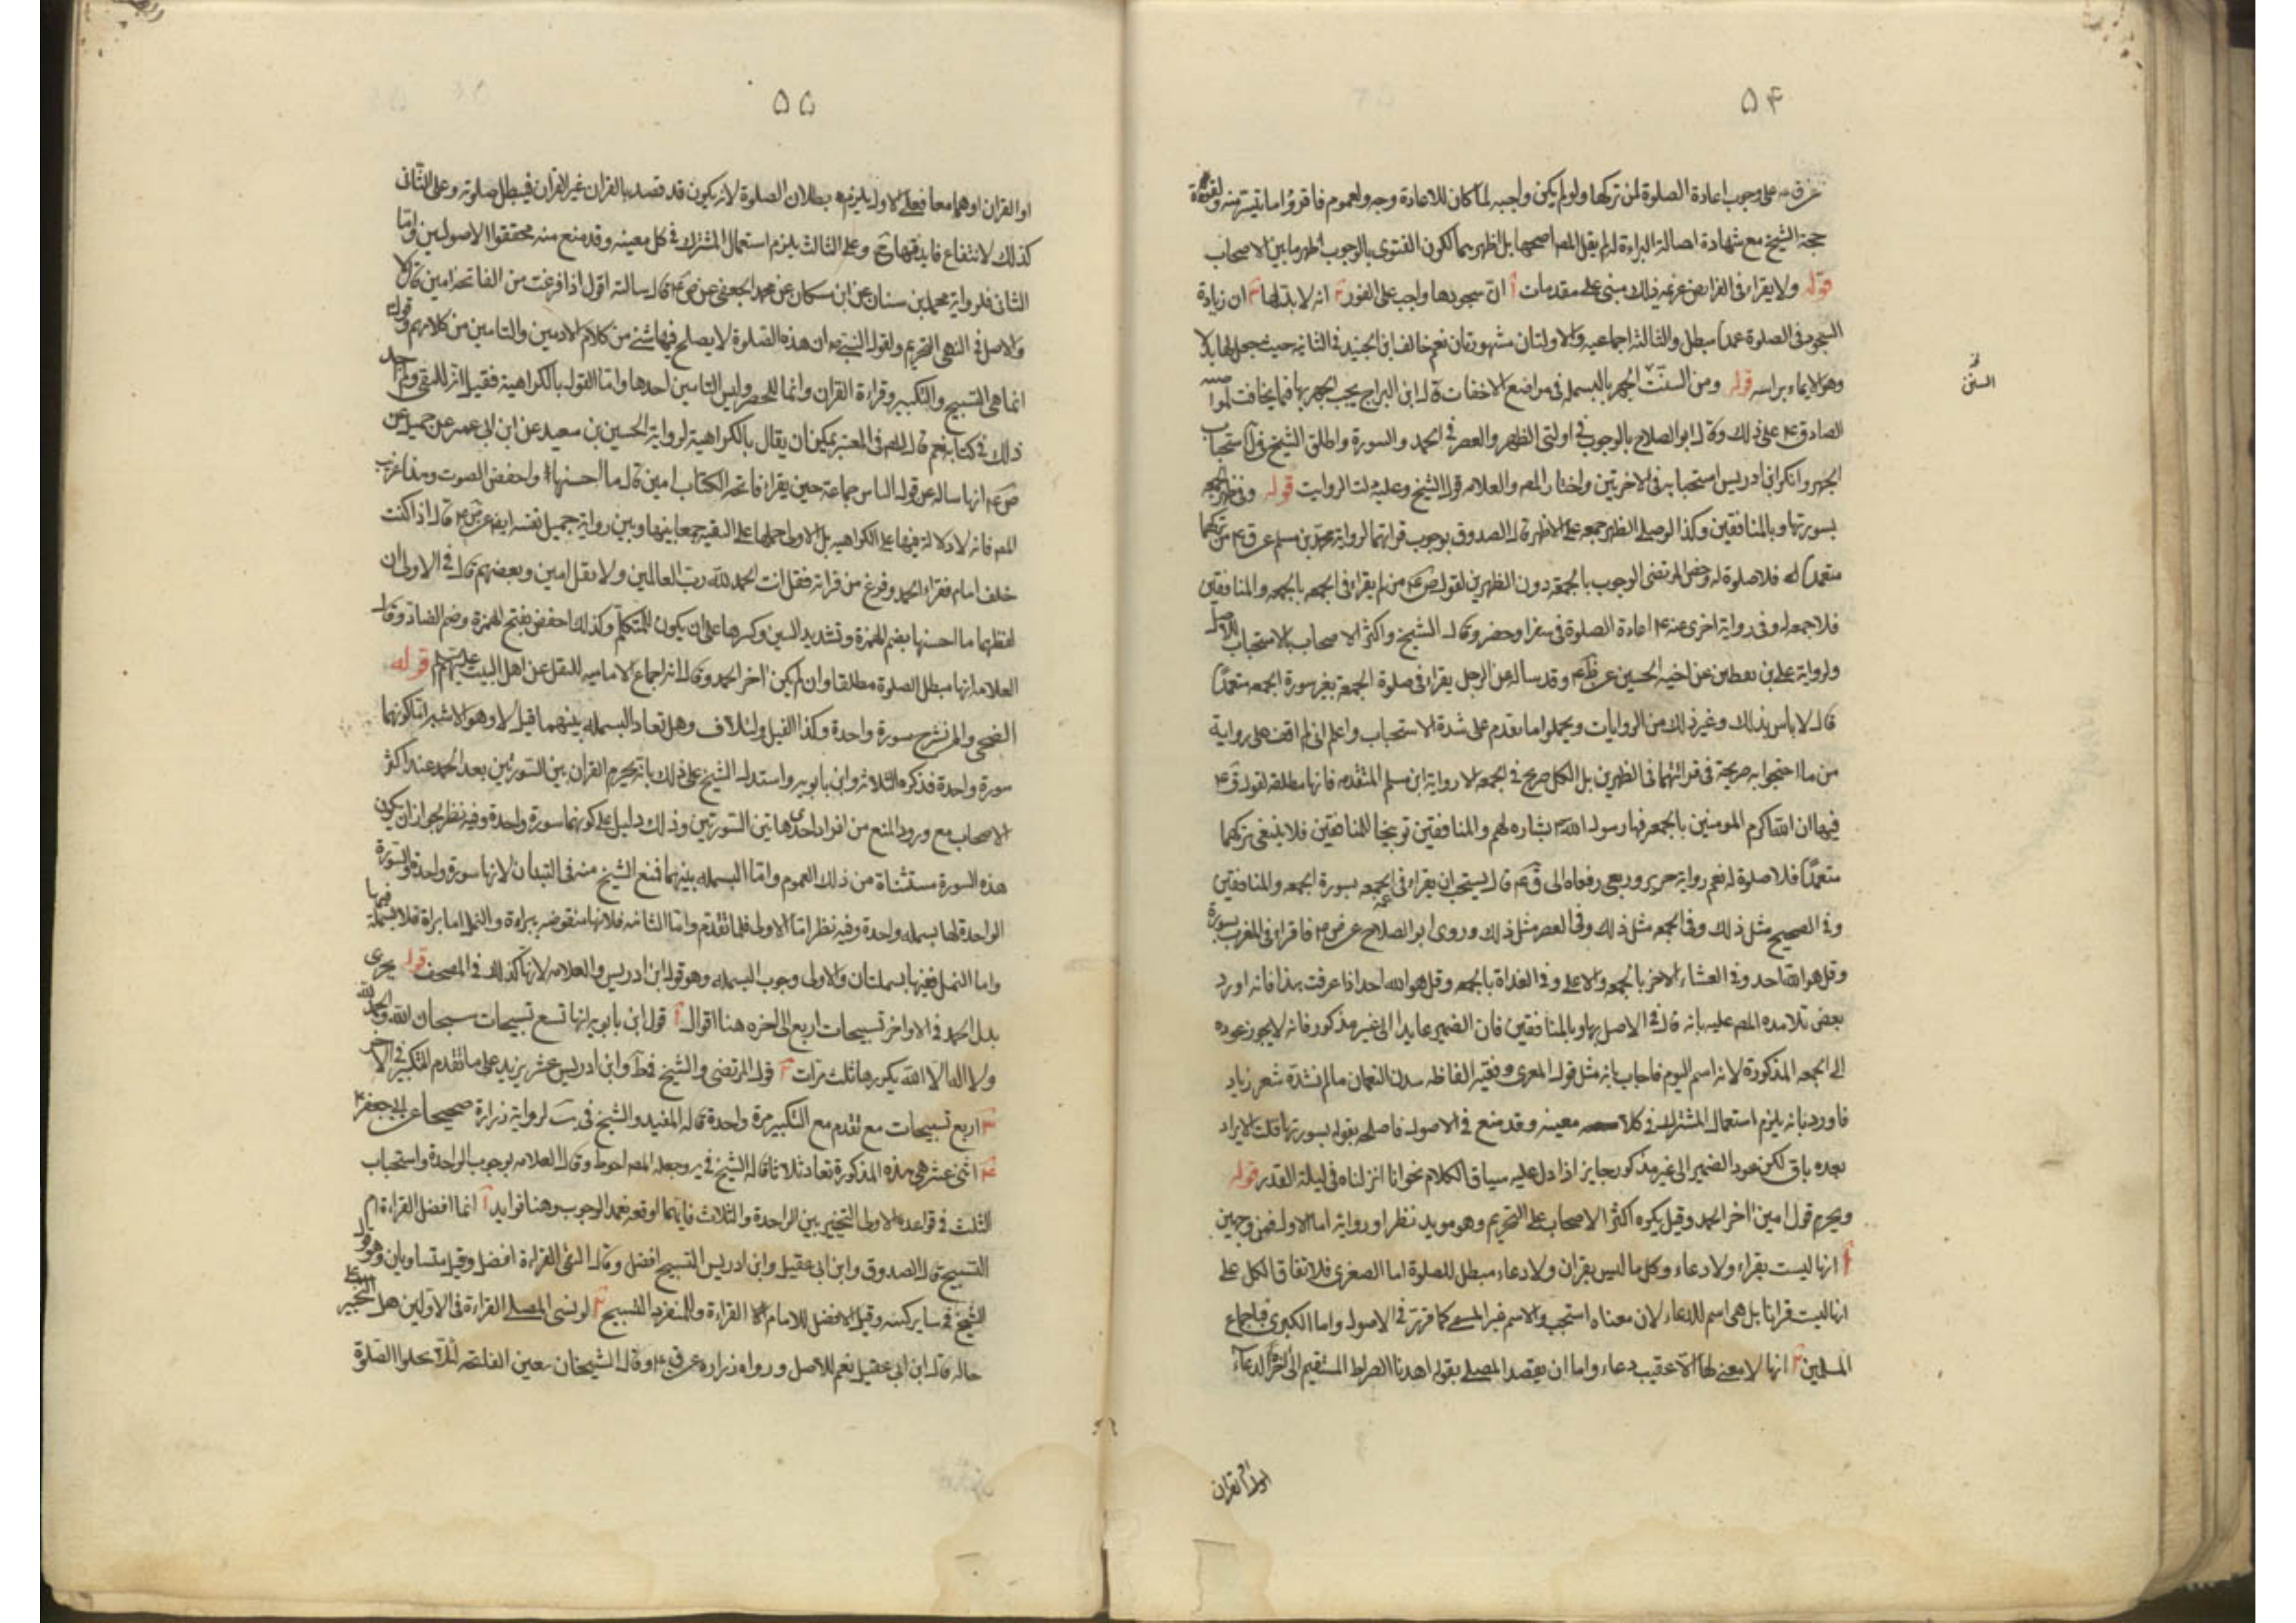 ۵۴
على وجوب اعادة الصلوة لمن تركها ولو لم يكن واجبه لما كان للاعادة وجه ولعموم فاقرؤا ما تيسر منه ولقوة
حجة الشيخ مع شهادة اصالة البراءة له لم يقل المص اصحهما بل اظهرهما لكون الفتوى بالوجوب اظهر ما بين الاصحاب
قوله ولا يقراء فى الفرائض عزيمه ذلك مبنى على مقدمات آ ان سجودها واجب على الفور ٢ انه لا بدلها ٣ ان زيادة
السجود فى الصلوة عمدا مبطل والثالثة اجماعيه والاولتان مشهورتان نعم خالف ابن الجنيد فى الثانيه حيث جعل لها بدلا
وهو الايماء براسه قوله ومن السنن الجهر بالبسمله فى مواضع الاخفات قال ابن البراج يجب الجهر بها فيما يخافت
السنن
الصادق ع على ذلك وقال ابو الصلاح بالوجوب فى اولتى الظهر والعصر فى الحمد والسورة واطلق الشيخ فى استحباب
الجهر وانكر ابن ادريس استحبابه فى الاخرتين واختار المص والعلامه قول الشيخ وعليه دلت الروايت قوله وفى ظهر الجمعه
بسورتها وبالمنافقين وكذا لو صلى الظهر جمعه على الاظهر قال الصدوق بوجوب قرائتهما لرواية محمد بن مسلم عن ق ع من تركهما
متعمدا فلا صلوة له وخص المرتضى الوجوب بالجمعة دون الظهرين لقول ص ع من لم يقراء فى الجمعه بالجمعه والمنافقين
فلا جمعه له وفى رواية اخرى عنه ع اعادة الصلوة فى سفر او حضر وقال الشيخ واكثر الاصحاب بالاستحباب للاصل
ولرواية على بن يقطين عن اخيه الحسين عن ظم ع وقد ساله عن الرجل يقراء فى صلوة الجمعة بغير سورة الجمعه متعمدا
قال لا باس بذلك وغير ذلك من الروايات ويحمل ما تقدم على شدة الاستحباب واعلم انى لم اقف على رواية
من ما احتجوا به صريحة فى قرائتهما فى الظهرين بل الكل صريح فى الجمعه الا رواية ابن مسلم المتقدمه فانها مطلقه لقوله ق ع
فيها ان الله اكرم المومنين بالجمعه فسنها رسول الله بشاره لهم والمنافقين توبيخا للمنافقين فلا ينبغى تركهما
متعمدا فلا صلوة له نعم رواية حريز وربعى رفعاه الى ق ع قال يستحب ان يقراء فى الجمعه بسورة الجمعه والمنافقين
وفى الصحيح مثل ذلك وفى الجمعه مثل ذلك وفى العصر مثل ذلك وروى ابو الصلاح عن ص ع فاقرا فى المغرب بسورة
وقل هو الله احد وفى العشاء الاخر بالجمعه والاعلى وفى الغداة بالجمعه وقل هو الله احد اذا عرفت هذا فانه اورد
بعض تلامذه المص عليه بانه قال فى الاصل بها وبالمنافقين فان الضمير عايد الى غير مذكور فانه لا يجوز عوده
الى الجمعه المذكورة لانه اسم اليوم فاجاب بانه مثل قول المعرى وفقيه الفاظه شدن النعمان مالم تشده شعر زياد
فاورد بانه يلزم استعمال المشترك فى كلا معينيه وقد منع فى الاصول فاصلحه بقوله بسورتها قلت الايراد
بعده باق لكن عود الضمير الى غير مذكور جايز اذا دل عليه سياق الكلام نحو انا انزلناه فى ليلة القدر قوله
ويحرم قول امين اخر الحمد وقيل يكره اكثر الاصحاب على التحريم وهو مويد نظرا ورواية اما الاول فمن وجهين
آ انها ليست بقراء ولا دعاء وكل ما ليس بقران ولا دعاء مبطل للصلوة اما الصغرى فلاتفاق الكل على
انها ليست قرانا بل هى اسم للدعاء لان معناه استجب والاسم غير المسمى كما قرر فى الاصول واما الكبرى فباجماع
المسلمين ٢ انها لا معنى لها الا عقيب دعاء واما ان يقصد المصلى بقوله اهدنا الصراط المستقيم الى اخره الدعاء
او القران
۵۵
او القران او هما معا فعلى الاول يلزم بطلان الصلوة لانه يكون قد قصد بالقران غير القران فيبطل صلوته وعلى الثانى
كذلك لانتفاع فايدتها ح وعلى الثالث يلزم استعمال المشترك فى كل معينيه وقد منع منه محققوا الاصوليين واما
الثانى فلرواية محمد بن سنان عن ابن مسكان عن محمد الجعفى عن ص ع قال سالته اقول اذا فرغت من الفاتحه امين قال لا
والاصل فى النهى التحريم ولقول النبى ص ان هذه الصلوة لا يصلح فيها شئ من كلام الادميين والتامين من كلامهم وقوله
انما هى التسبيح والتكبير وقراءة القران وانما للحصر وليس التامين احدها واما القول بالكراهية فقيل انه للتقى ولم اجد
ذلك فى كتابه نعم قال المص فى المعتبر يمكن ان يقال بالكراهية لرواية الحسين بن سعيد عن ابن ابى عمير عن جميل عن
ص ع انه ساله عن قول الناس جماعة حين يقراء فاتحه الكتاب امين قال ما احسنها واخفض الصوت وهذا غريب
المص فانه لا دلالة فيها على الكراهيه بل الاولى حملها على التقيه جمعا بينها وبين رواية جميل نفسه ايضا عن ص ع قال اذا كنت
خلف امام فقراء الحمد وفرغ من قراته فقل انت الحمد لله رب العالمين ولا تقل امين وبعضهم قال فى الاولى ان
لفظهما ما احسنها بضم الهمزة وتشديد السين وكسرها على ان يكون للمتكلم وكذلك اخفض بفتح الهمزة وضم الضاد وقال
العلامه انها مبطل الصلوة مطلقا وان لم يكن اخر الحمد وقال انه اجماع الاماميه للنقل عن اهل البيت عليهم قوله
الضحى والم نشرح سورة واحدة وكذا الفيل ولئلاف وهل تعاد البسمله بينهما قيل لا وهو الاشبه اما كونهما
سورة واحدة فذكره الثلاثه وابن بابويه واستدل الشيخ على ذلك بانه يحرم القران بين السورتين بعد الحمد عند اكثر
الاصحاب مع ورود المنع من افراد احدى هاتين السورتين وذلك دليل على كونهما سورة واحدة وفيه نظر لجواز ان يكون
هذه السورة مستثناة من ذلك العموم واما البسمله بينهما فمنع الشيخ منه فى التبيان لانها سورة واحدة والسورة
الواحدة لها بسمله واحدة وفيه نظر اما الاولى فلما تقدم واما الثانيه فلانها منقوضه ببراءة والنمل اما براة فلا بسملة فيها
واما النمل ففيها بسملتان والاولى وجوب البسمله وهو قول ابن ادريس والعلامه لانها كذلك فى المصحف قوله يجزى
بدل الحمد فى الاواخر تسبيحات اربع الى اخره هنا اقوال آ قول ابن بابويه انها تسع تسبيحات سبحان الله والحمد لله
ولا اله الا الله يكررها ثلث مرات ٢ قول المرتضى والشيخ فى ط وابن ادريس عشر يزيد على ما تقدم التكبير فى الاخر
٣ اربع تسبيحات مع تقدم مع التكبير مرة واحدة قاله المفيد والشيخ فى يب لرواية زرارة صحيحا عن ابى جعفر ع
۴ اثنى عشر هى هذه المذكورة تعاد ثلاثا قاله الشيخ فى ير وجعله المص احوط وقال العلامه بوجوب الواحدة واستحباب
الثلث فى قواعده والاولى التخيير بين الواحدة والثلاث فايهما اوقعه تعمد الوجوب وهنا فوايد آ انما افضل القراءة ام
التسبيح قال الصدوق وابن ابى عقيل وابن ادريس التسبيح افضل وقال التقى القراءة افضل وقيل متساويان وهو قول
الشيخ فى ساير كتبه وقيل الافضل للامام القراءة وللمنفرد التسبيح ٢ لو نسى المصلى القراءة فى الاولين هل التخيير
حاله قال ابن ابى عقيل نعم للاصل ورواه زراره عن ق ع وقال الشيخان يتعين الفاتحه لئلا تخلوا الصلوة